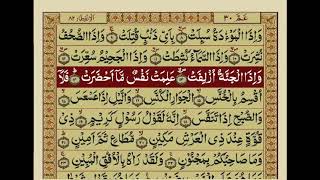 عَمَّ ٣٠ اَلْاِنْفِطَار ٨٢
وَاِذَا الْمَوْءٗدَةُ سُىِٕلَتْ بِاَیِّ ذَنْۢبٍ قُتِلَتْ وَاِذَا الصُّحُفُ
نُشِرَتْ وَاِذَا السَّمَآءُ كُشِطَتْ وَاِذَا الْجَحِیْمُ سُعِّرَتْ
وَاِذَا الْجَنَّةُ اُزْلِفَتْ عَلِمَتْ نَفْسٌ مَّاۤ اَحْضَرَتْ فَلَاۤ
اُقْسِمُ بِالْخُنَّسِ الْجَوَارِ الْكُنَّسِ وَالَّیْلِ اِذَا عَسْعَسَ
وَالصُّبْحِ اِذَا تَنَفَّسَ اِنَّهٗ لَقَوْلُ رَسُوْلٍ كَرِیْمٍ ذِیْ
قُوَّةٍ عِنْدَ ذِی الْعَرْشِ مَكِیْنٍ مُّطَاعٍ ثَمَّ اَمِیْنٍ
وَمَا صَاحِبُكُمْ بِمَجْنُوْنٍ وَلَقَدْ رَاٰهُ بِالْاُفُقِ الْمُبِیْنِ